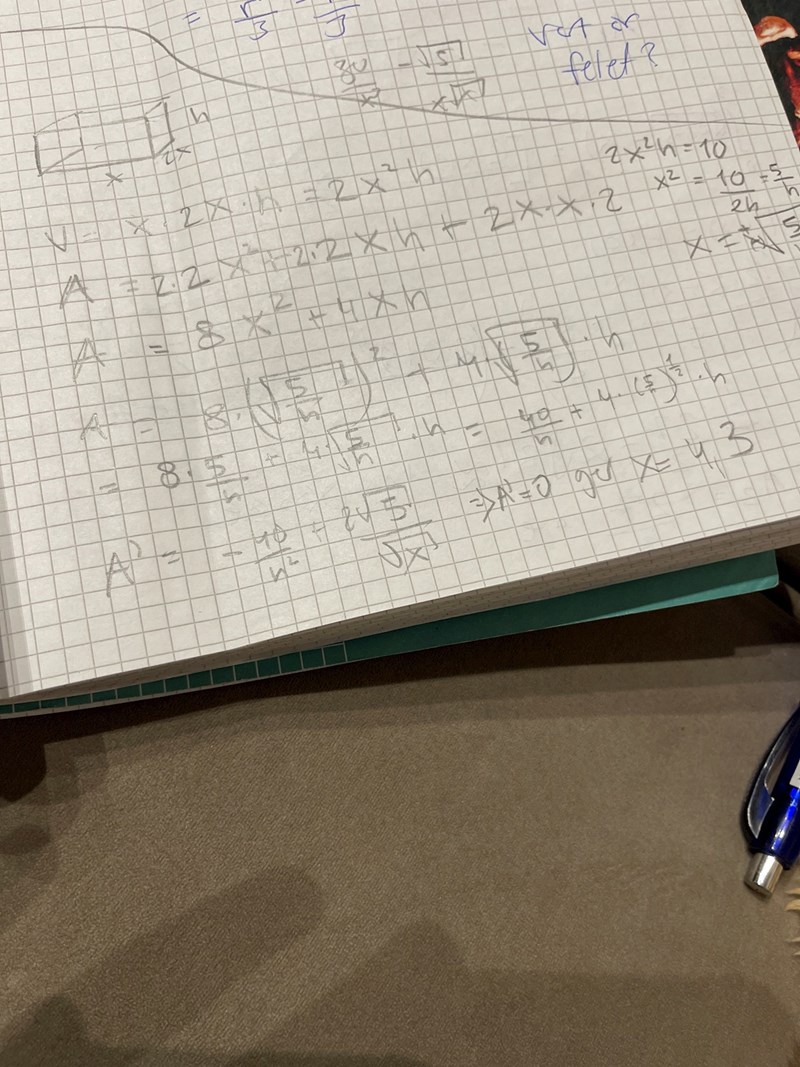 = r/3 - r/3
vet du
felet?
30/x - √5/(x√x)
h
2x
x
2x²h = 10
x² = 10/2h = 5/h
x = √5
V = x · 2x · h = 2x²h
A = 2·2x² + 2·2xh + 2x·x·2
A = 8x² + 4xh
A = 8·(√(5/h))² + 4√(5/h) · h
= 8 · 5/h + 4·√(5/h) · h = 40/h + 4·(5/h)^(1/2) · h
A' = - 40/h² + 2√5/√x => A'=0 ger x = 4,3